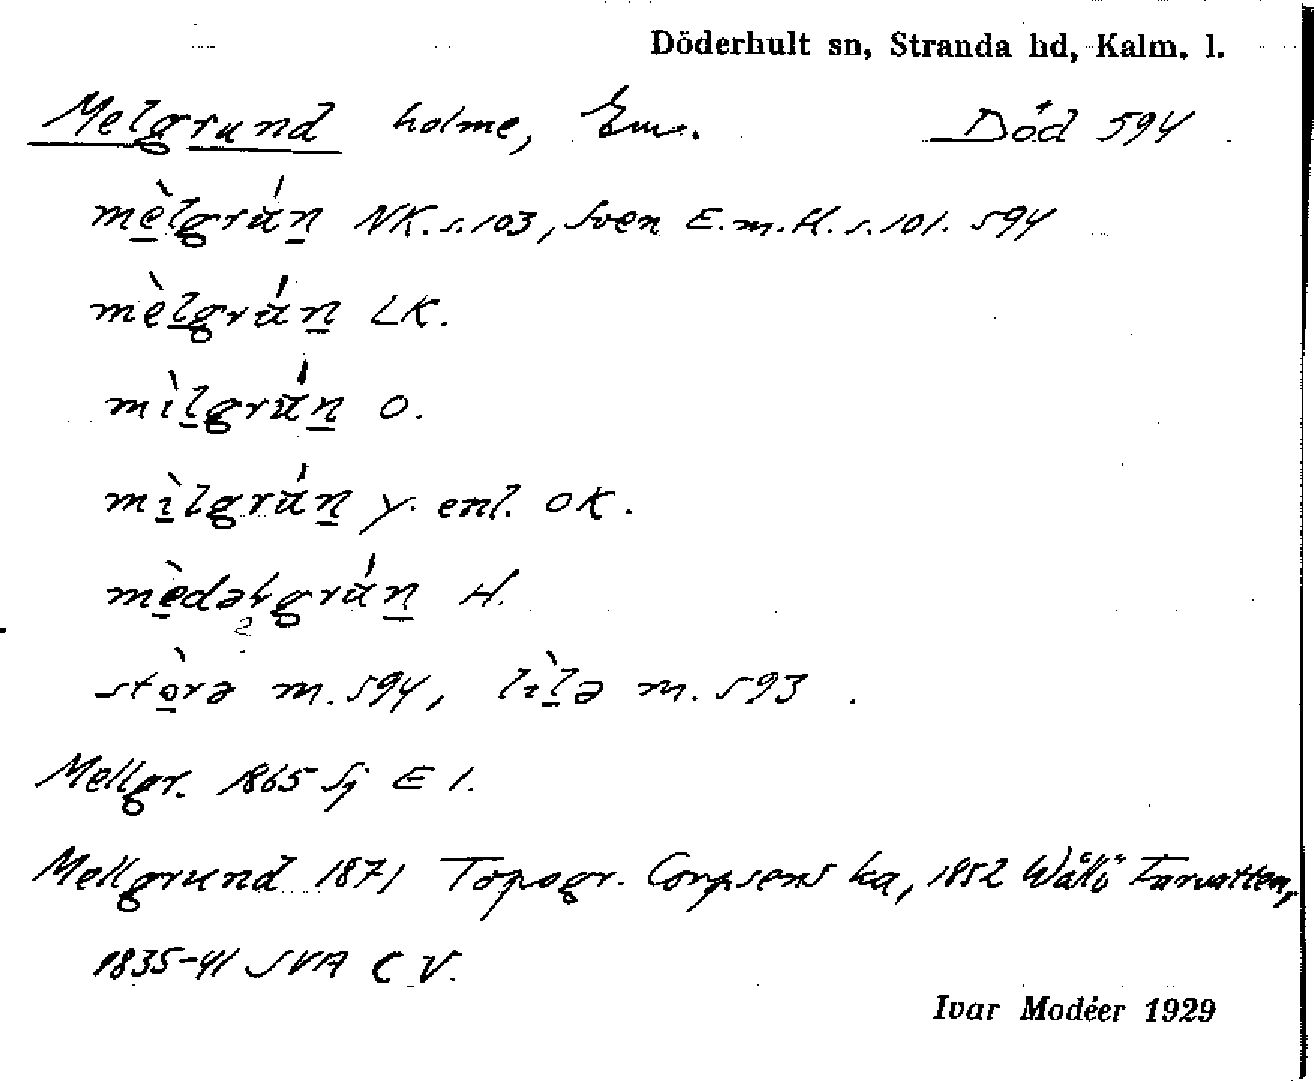 Döderhult sn, Stranda hd, Kalm. l.
Melgrund holme, Em. Död 594
mèlgrún NK. s. 103, Sven E. m. H. s. 101. 594
mèlgrún LK.
mìlgrún O.
mìlgrún y. enl. OK.
mèdəlgrún H.
2
stòrə m. 594, lìlə m. 593.
Mellgr. 1865 Sj E 1.
Mellgrund 1871 Topogr. Corpsens ka, 1852 Wållö Farvatten,
1835-41 SVA C V.
Ivar Modéer 1929